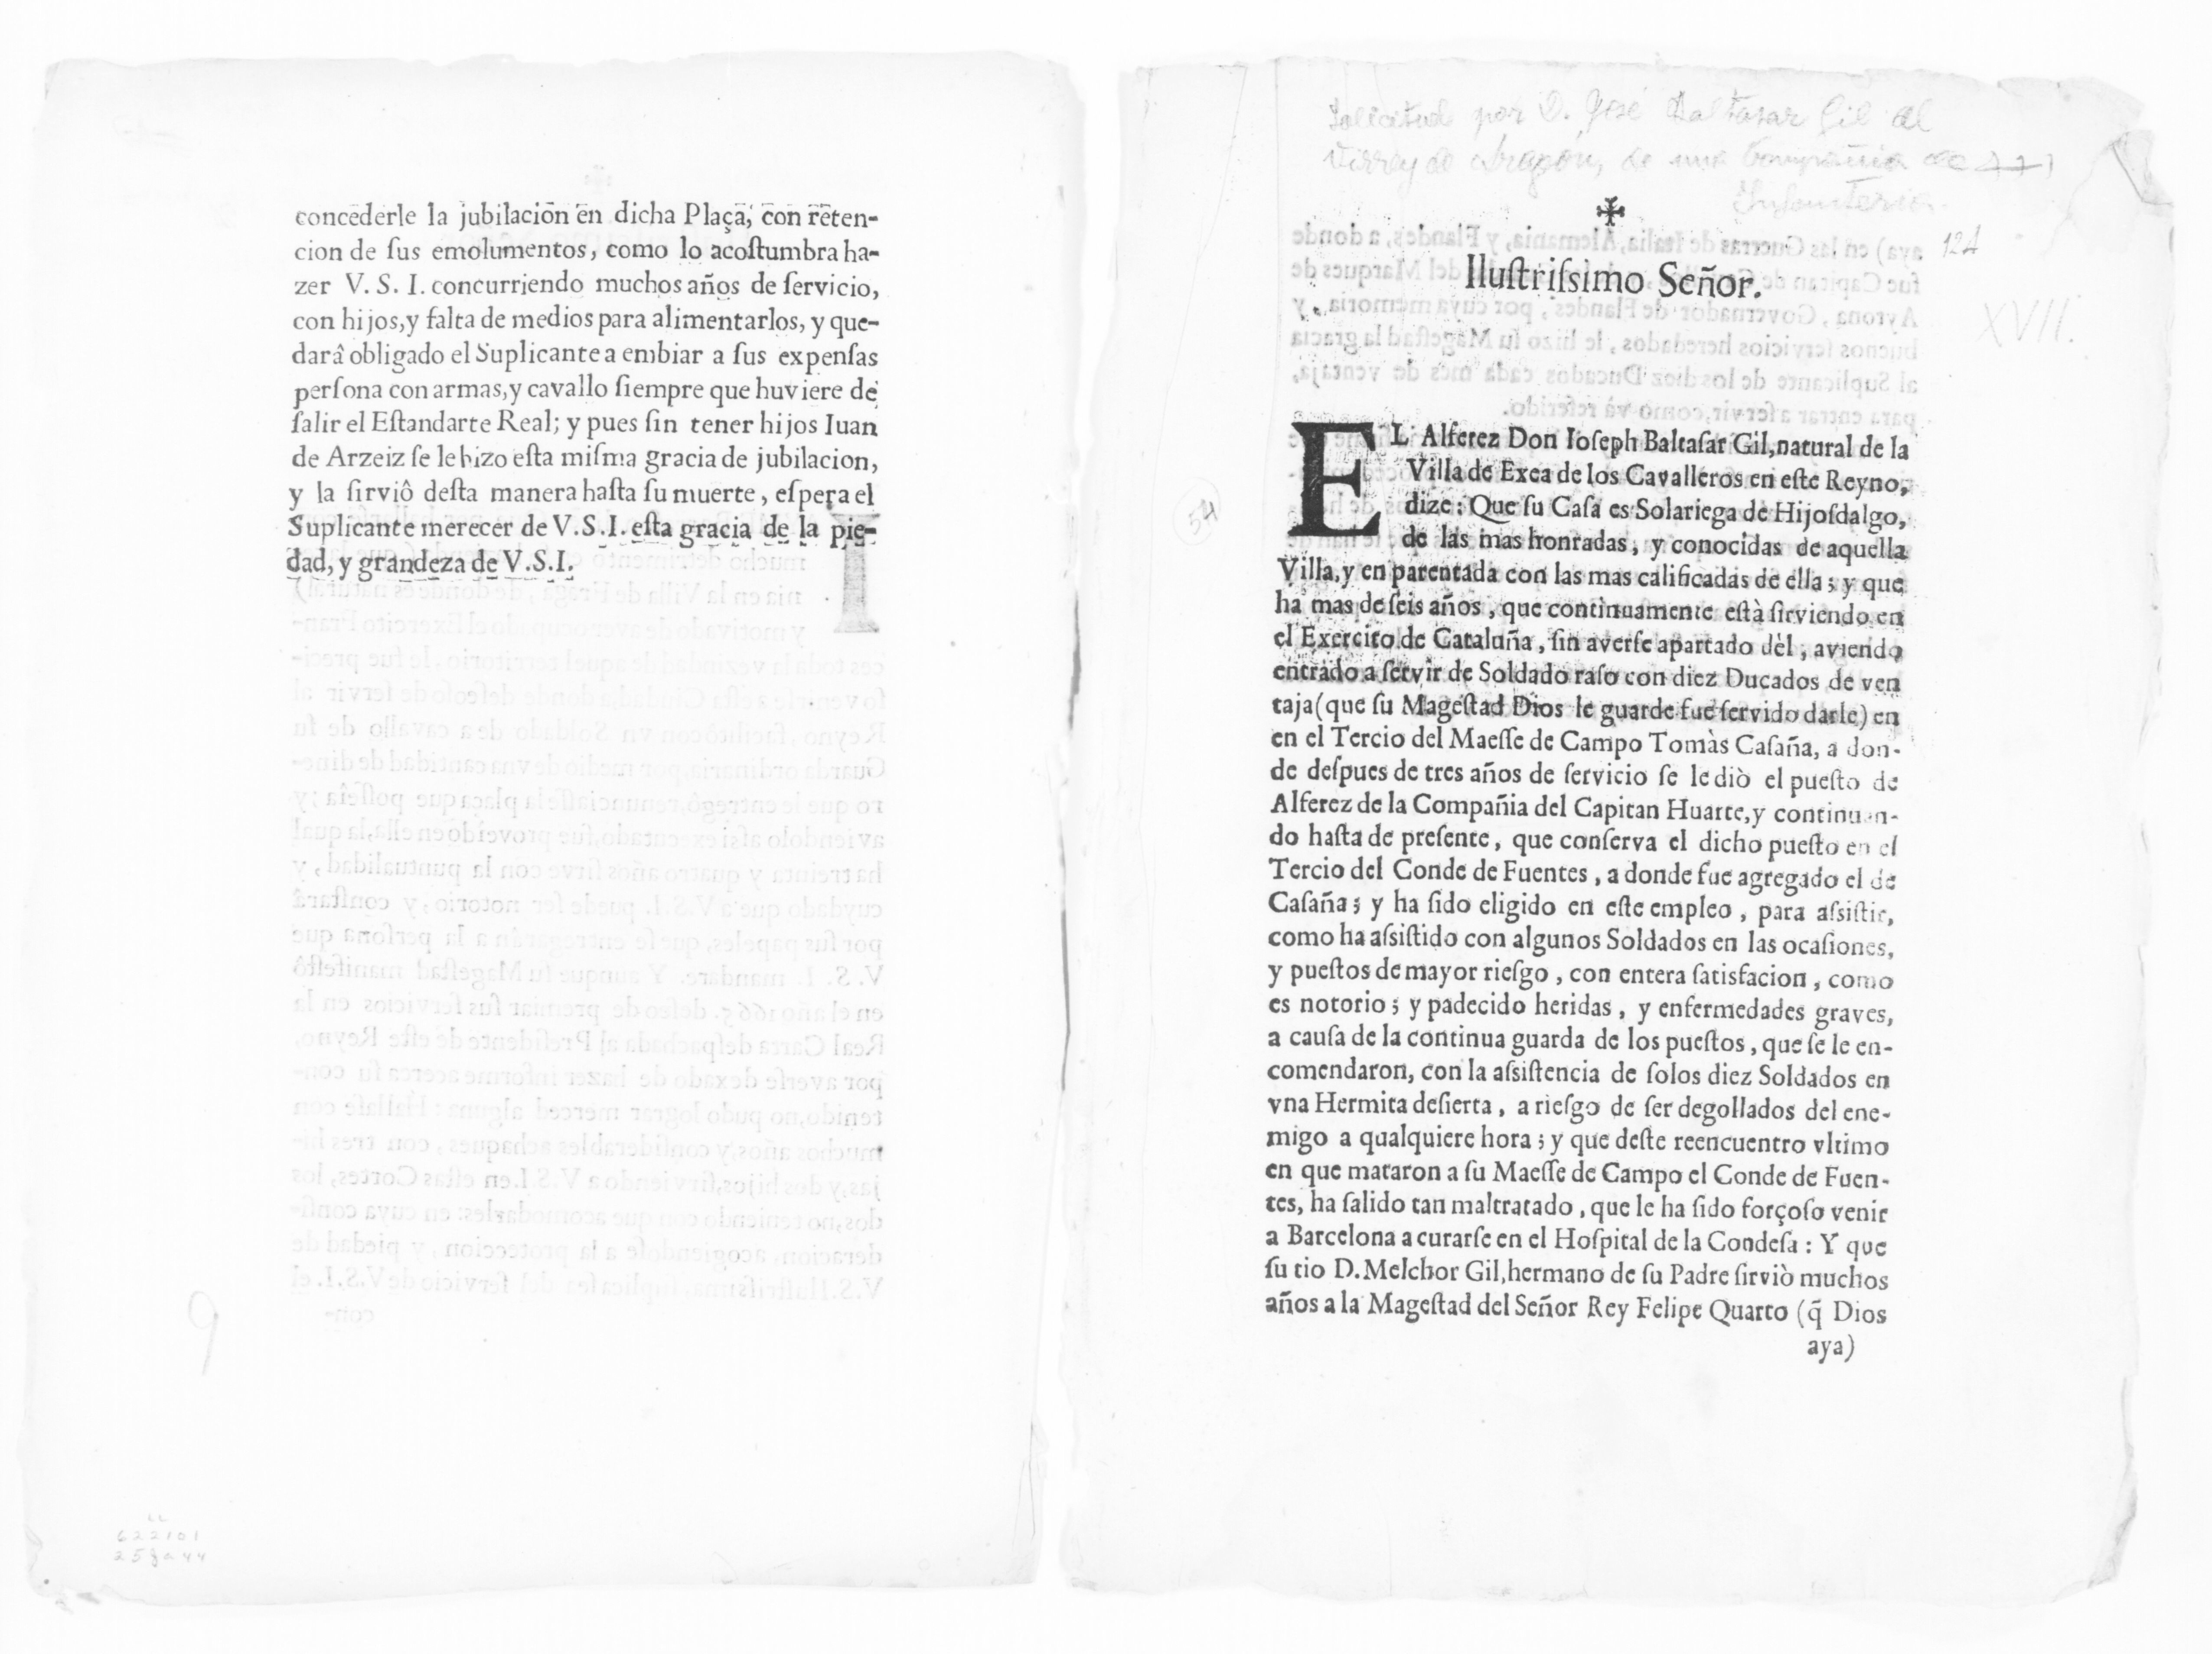 concederle la jubilacion en dicha Plaça, con reten-
cion de ſus emolumentos, como lo acoſtumbra ha-
zer V. S. I. concurriendo muchos años de ſervicio,
con hijos, y falta de medios para alimentarlos, y que-
darâ obligado el Suplicante a embiar a ſus expenſas
perſona con armas, y cavallo ſiempre que huviere de
ſalir el Eſtandarte Real; y pues ſin tener hijos Iuan
de Arzeiz ſe le hizo eſta miſma gracia de jubilacion,
y la ſirviô deſta manera haſta ſu muerte, eſpera el
Suplicante merecer de V.S.I. eſta gracia de la pie-
dad, y grandeza de V.S.I.
9
622101
Solicitud por D. José Baltasar Gil al
Virrey de Aragón, de una Compañia de
Infanteria.
124
XVII.
54
Iluſtriſsimo Señor.
EL Alferez Don Ioſeph Baltaſar Gil, natural de la
Villa de Exea de los Cavalleros en eſte Reyno,
dize: Que ſu Caſa es Solariega de Hijoſdalgo,
de las mas honradas, y conocidas de aquella
Villa, y en parentada con las mas calificadas de ella; y que
ha mas de ſeis años, que continuamente eſtà ſirviendo en
el Exercito de Cataluña, ſin averſe apartado dèl, aviendo
entrado a ſervir de Soldado raſo con diez Ducados de ven
taja (que ſu Mageſtad Dios le guarde fue ſervido darle) en
en el Tercio del Maeſſe de Campo Tomàs Caſaña, a don-
de deſpues de tres años de ſervicio ſe le diò el pueſto de
Alferez de la Compañia del Capitan Huarte, y continuan-
do haſta de preſente, que conſerva el dicho pueſto en el
Tercio del Conde de Fuentes, a donde fue agregado el de
Caſaña; y ha ſido eligido en eſte empleo, para aſsiſtir,
como ha aſsiſtido con algunos Soldados en las ocaſiones,
y pueſtos de mayor rieſgo, con entera ſatisfacion, como
es notorio; y padecido heridas, y enfermedades graves,
a cauſa de la continua guarda de los pueſtos, que ſe le en-
comendaron, con la aſsiſtencia de ſolos diez Soldados en
vna Hermita deſierta, a rieſgo de ſer degollados del ene-
migo a qualquiere hora; y que deſte reencuentro vltimo
en que mataron a ſu Maeſſe de Campo el Conde de Fuen-
tes, ha ſalido tan maltratado, que le ha ſido forçoſo venir
a Barcelona a curarſe en el Hoſpital de la Condeſa: Y que
ſu tio D. Melchor Gil, hermano de ſu Padre ſirviò muchos
años a la Mageſtad del Señor Rey Felipe Quarto (q̃ Dios
aya)